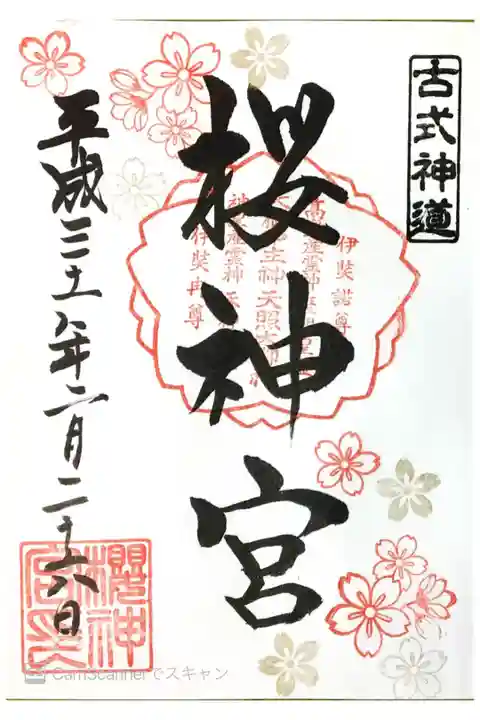 古式神道
櫻神宮
伊弉諾尊
伊弉冉尊
平成三十一年二月二十六日
CamScannerでスキャン